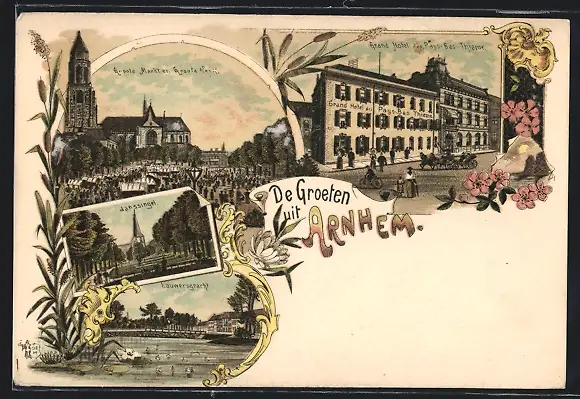 Groote Markt en Groote Kerk.
Grand Hotel des Pays-Bas-Thieme.
Grand Hotel des Pays-Bas Thieme
Janssingel
De Groeten
uit ARNHEM.
Lauwersgracht